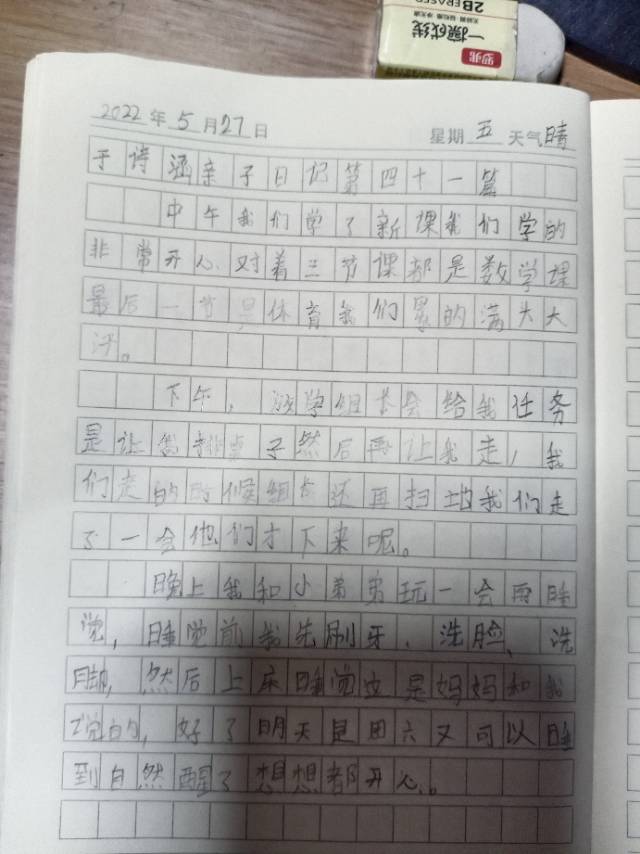 2B ERASER
一擦成线
2022年5月27日 星期五天气晴
于诗涵亲子日记第四十一篇
中午我们学了新课我们学的
非常开心对着三节课都是数学课
最后一节是体育我们累的满大大
汗。
下午，放学组长会给我任务
是让我排桌子然后再让我走，我
们走的时候组长还再扫地我们走
了一会他们才下来呢。
晚上我和小弟弟玩一会再睡
觉，睡觉前我先刷牙、洗脸、洗
脚，然后上床睡觉这是妈妈和我
说的，好了明天是周六又可以睡
到自然醒了想想都开心。